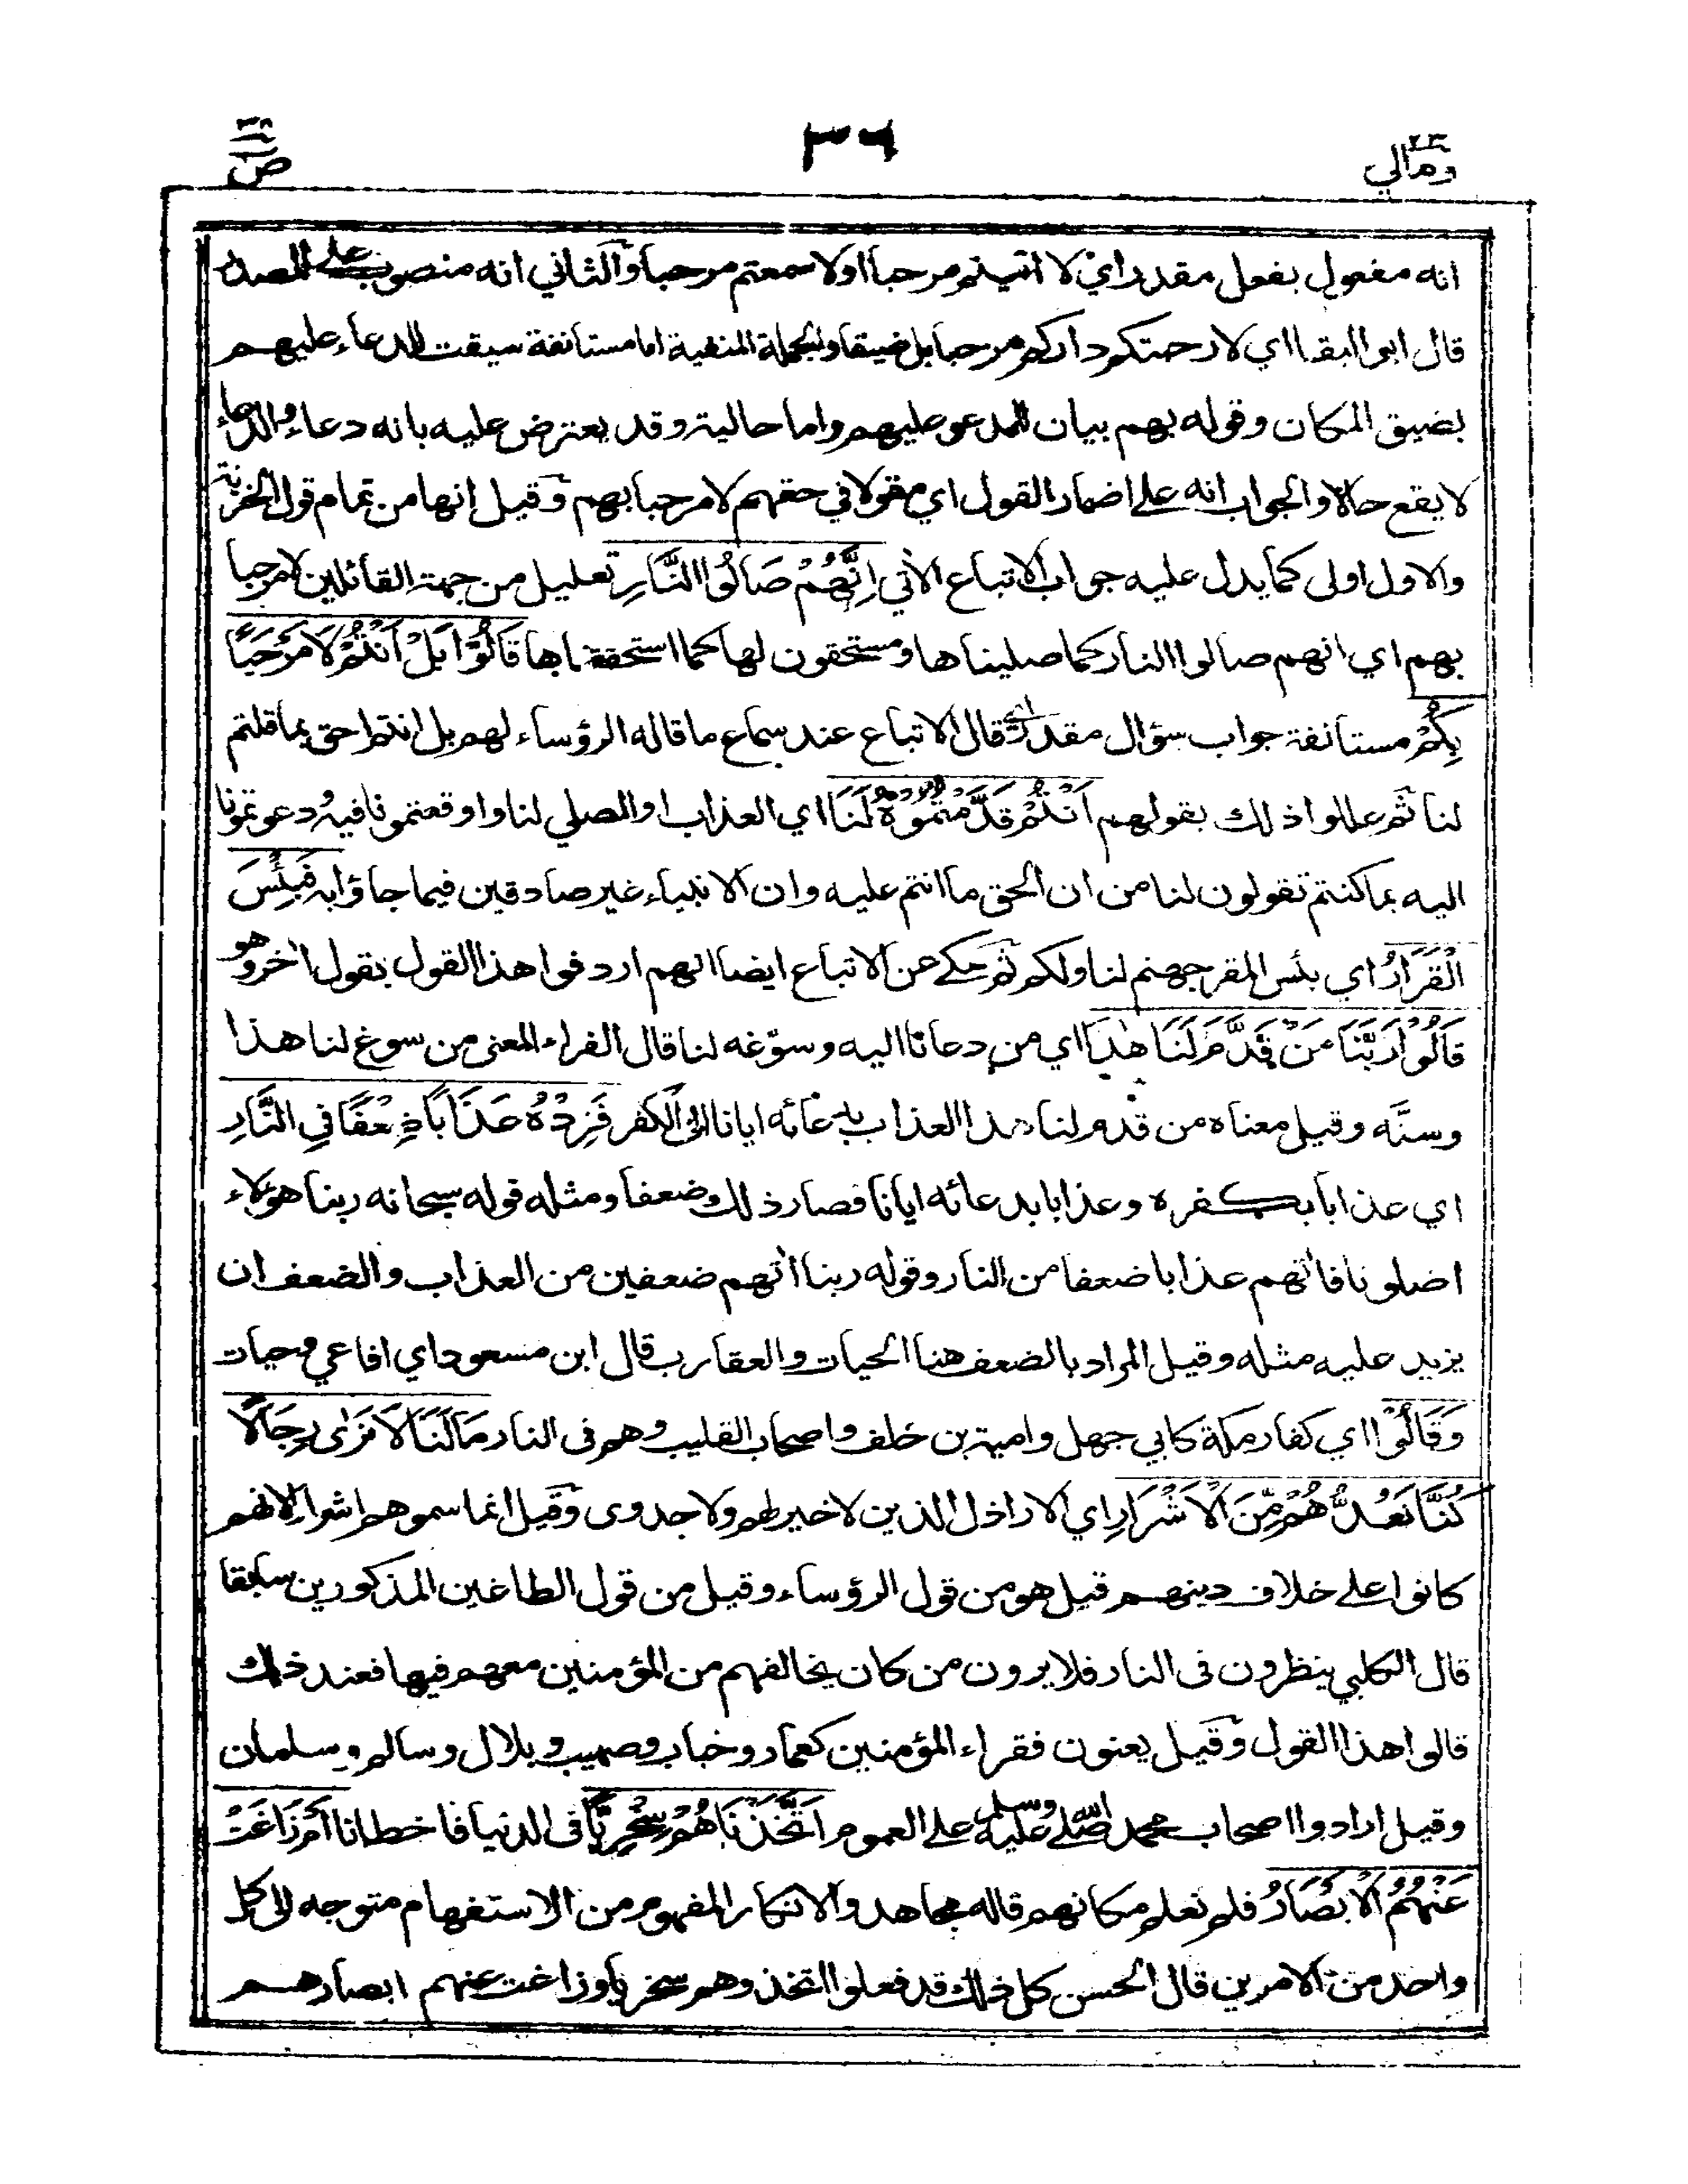 ٢٣ ومالي
٣٦
٣٨ ص
انه مفعول بفعل مقدر اي لا اتيتم مرحبا اولا سمعتم مرحبا والثاني انه منصوب على المصدر
قال ابو البقا اي لا رحبتكم داركم مرحبا بل ضيقا والجملة المنفية اما مستانفة سيقت للدعاء عليهم
بضيق المكان وقوله بهم بيان للمدعو عليهم واما حالية وقد يعترض عليه بانه دعاء والدعاء
لا يقع حالا والجواب انه على اضمار القول اي مقولا في حقهم لا مرحبا بهم وقيل انها من تمام قول الخزنة
والاول اولى كما يدل عليه جواب الاتباع الآتي اِنَّهُمْ صَالُوا النَّارِ تعليل من جهة القائلين لا مرحبا
بهم اي انهم صالوا النار كما صليناها ومستحقون لها كما استحقيناها قَالُوْا بَلْ اَنْتُمْ لَا مَرْحَبًا
بِكُمْ مستانفة جواب سؤال مقدر اي قال الاتباع عند سماع ما قاله الرؤساء لهم بل انتم احق بما قلتم
لنا ثم عللوا ذلك بقولهم اَنْتُمْ قَدَّمْتُمُوْهُ لَنَا اي العذاب او الصلي لنا واوقعتمونا فيه ودعوتمونا
اليه بما كنتم تقولون لنا من ان الحق ما انتم عليه وان الانبياء غير صادقين فيما جاؤا به فَبِئْسَ
الْقَرَارُ اي بئس المقر جهنم لنا ولكم ثم حكى عن الاتباع ايضا انهم اردفوا هذا القول بقول اخر وهو
قَالُوْا رَبَّنَا مَنْ قَدَّمَ لَنَا هٰذَا اي من دعانا اليه وسوّغه لنا قال الفراء المعنى من سوغ لنا هذا
وسنَّه وقيل معناه من قدم لنا هذا العذاب بدعائه ايانا الى الكفر فَزِدْهُ عَذَابًا ضِعْفًا فِي النَّارِ
اي عذابا بكفره وعذابا بدعائه ايانا فصار ذلك ضعفا ومثله قوله سبحانه ربنا هؤلاء
اضلونا فاٰتهم عذابا ضعفا من النار وقوله ربنا اٰتهم ضعفين من العذاب والضعف ان
يزيد عليه مثله وقيل المراد بالضعف هنا الحيات والعقارب قال ابن مسعود اي افاعي وحيات
وَقَالُوْا اي كفار مكة كابي جهل وامية بن خلف واصحاب القليب وهم في النار مَا لَنَا لَا نَرٰى رِجَالًا
كُنَّا نَعُدُّهُمْ مِّنَ الْاَشْرَارِ اي الاراذل الذين لا خير لهم ولا جدوى وقيل انما سموهم اشرارا لانهم
كانوا على خلاف دينهم قيل هو من قول الرؤساء وقيل من قول الطاغين المذكورين سابقا
قال الكلبي ينظرون في النار فلا يرون من كان يخالفهم من المؤمنين معهم فيها فعند ذلك
قالوا هذا القول وقيل يعنون فقراء المؤمنين كعمار وخباب وصهيب وبلال وسالم وسلمان
وقيل ارادوا اصحاب محمد صلى الله عليه وسلم على العموم اَتَّخَذْنَاهُمْ سِخْرِيًّا في الدنيا فاخطانا اَمْ زَاغَتْ
عَنْهُمُ الْاَبْصَارُ فلم نعلم مكانهم قاله مجاهد والانكار المفهوم من الاستفهام متوجه الى كل
واحد من الامرين قال الحسن كل ذلك قد فعلوا اتخذوهم سخريا وزاغت عنهم ابصارهم